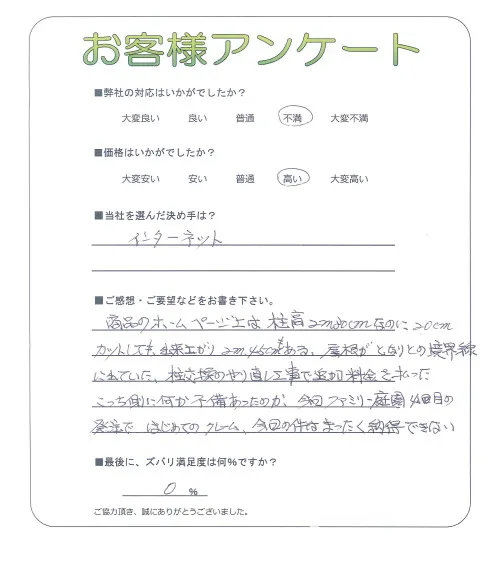 お客様アンケート
■弊社の対応はいかがでしたか？
大変良い 良い 普通 不満 大変不満
■価格はいかがでしたか？
大変安い 安い 普通 高い 大変高い
■当社を選んだ決め手は？
インターネット
■ご感想・ご要望などをお書き下さい。
商品のホームページ上は柱高2m30cmなのに20cm
カットしても、出来上がり2m45cmもある、屋根がとなりとの境界線
に出ていた、柱交換のやり直し工事で追加料金を払った
こっち側に何か予備あったのか、今回ファミリー庭園4回目の
発注で はじめてのクレーム、今回の件はまったく納得できない
■最後に、ズバリ満足度は何%ですか？
0 %
ご協力頂き、誠にありがとうございました。